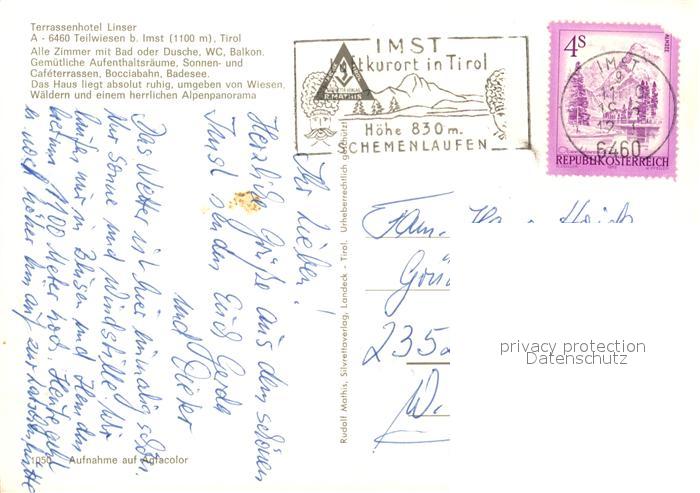 Terrassenhotel Linser
A - 6460 Teilwiesen b. Imst (1100 m), Tirol
Alle Zimmer mit Bad oder Dusche, WC, Balkon.
Gemütliche Aufenthaltsräume, Sonnen- und
Caféterrassen, Bocciabahn, Badesee.
Das Haus liegt absolut ruhig, umgeben von Wiesen,
Wäldern und einem herrlichen Alpenpanorama
IMST
Luftkurort in Tirol
Höhe 830 m.
SCHEMENLAUFEN
4S
IMST
6460
REPUBLIK ÖSTERREICH
Ihr Lieben!
Herzliche Grüße aus dem schönen
Imst senden Euch Gerda
und Dieter
Das Wetter ist hier einmalig schön.
Nur Sonne und Windstille. Wir
laufen nur in Blusen und Hemden
1100 Meter hoch. Heute geht
noch höher hinauf zur
Rudolf Mathis, Silvrettaverlag, Landeck - Tirol. Urheberrechtlich geschützt
Fam.
235
W.
privacy protection
Datenschutz
1050 Aufnahme auf Agfacolor